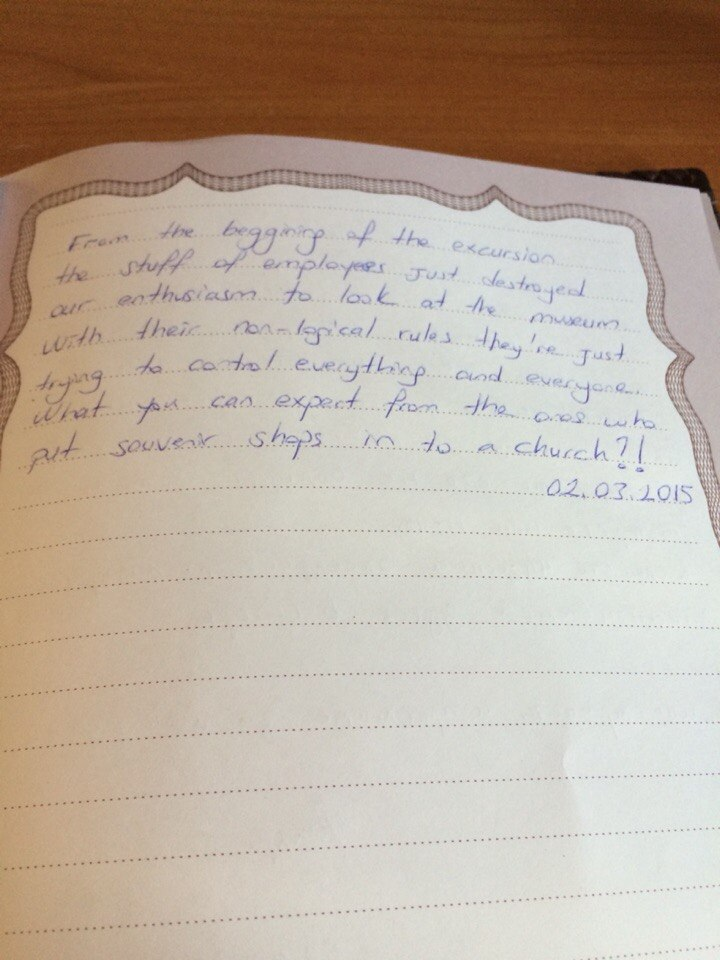 From the beggining of the excursion
the stuff of employees just destroyed
our enthusiasm to look at the museum
with their non-logical rules they're just
trying to control everything and everyone.
What you can expect from the ones who
put souvenir shops in to a church?!
02.03.2015